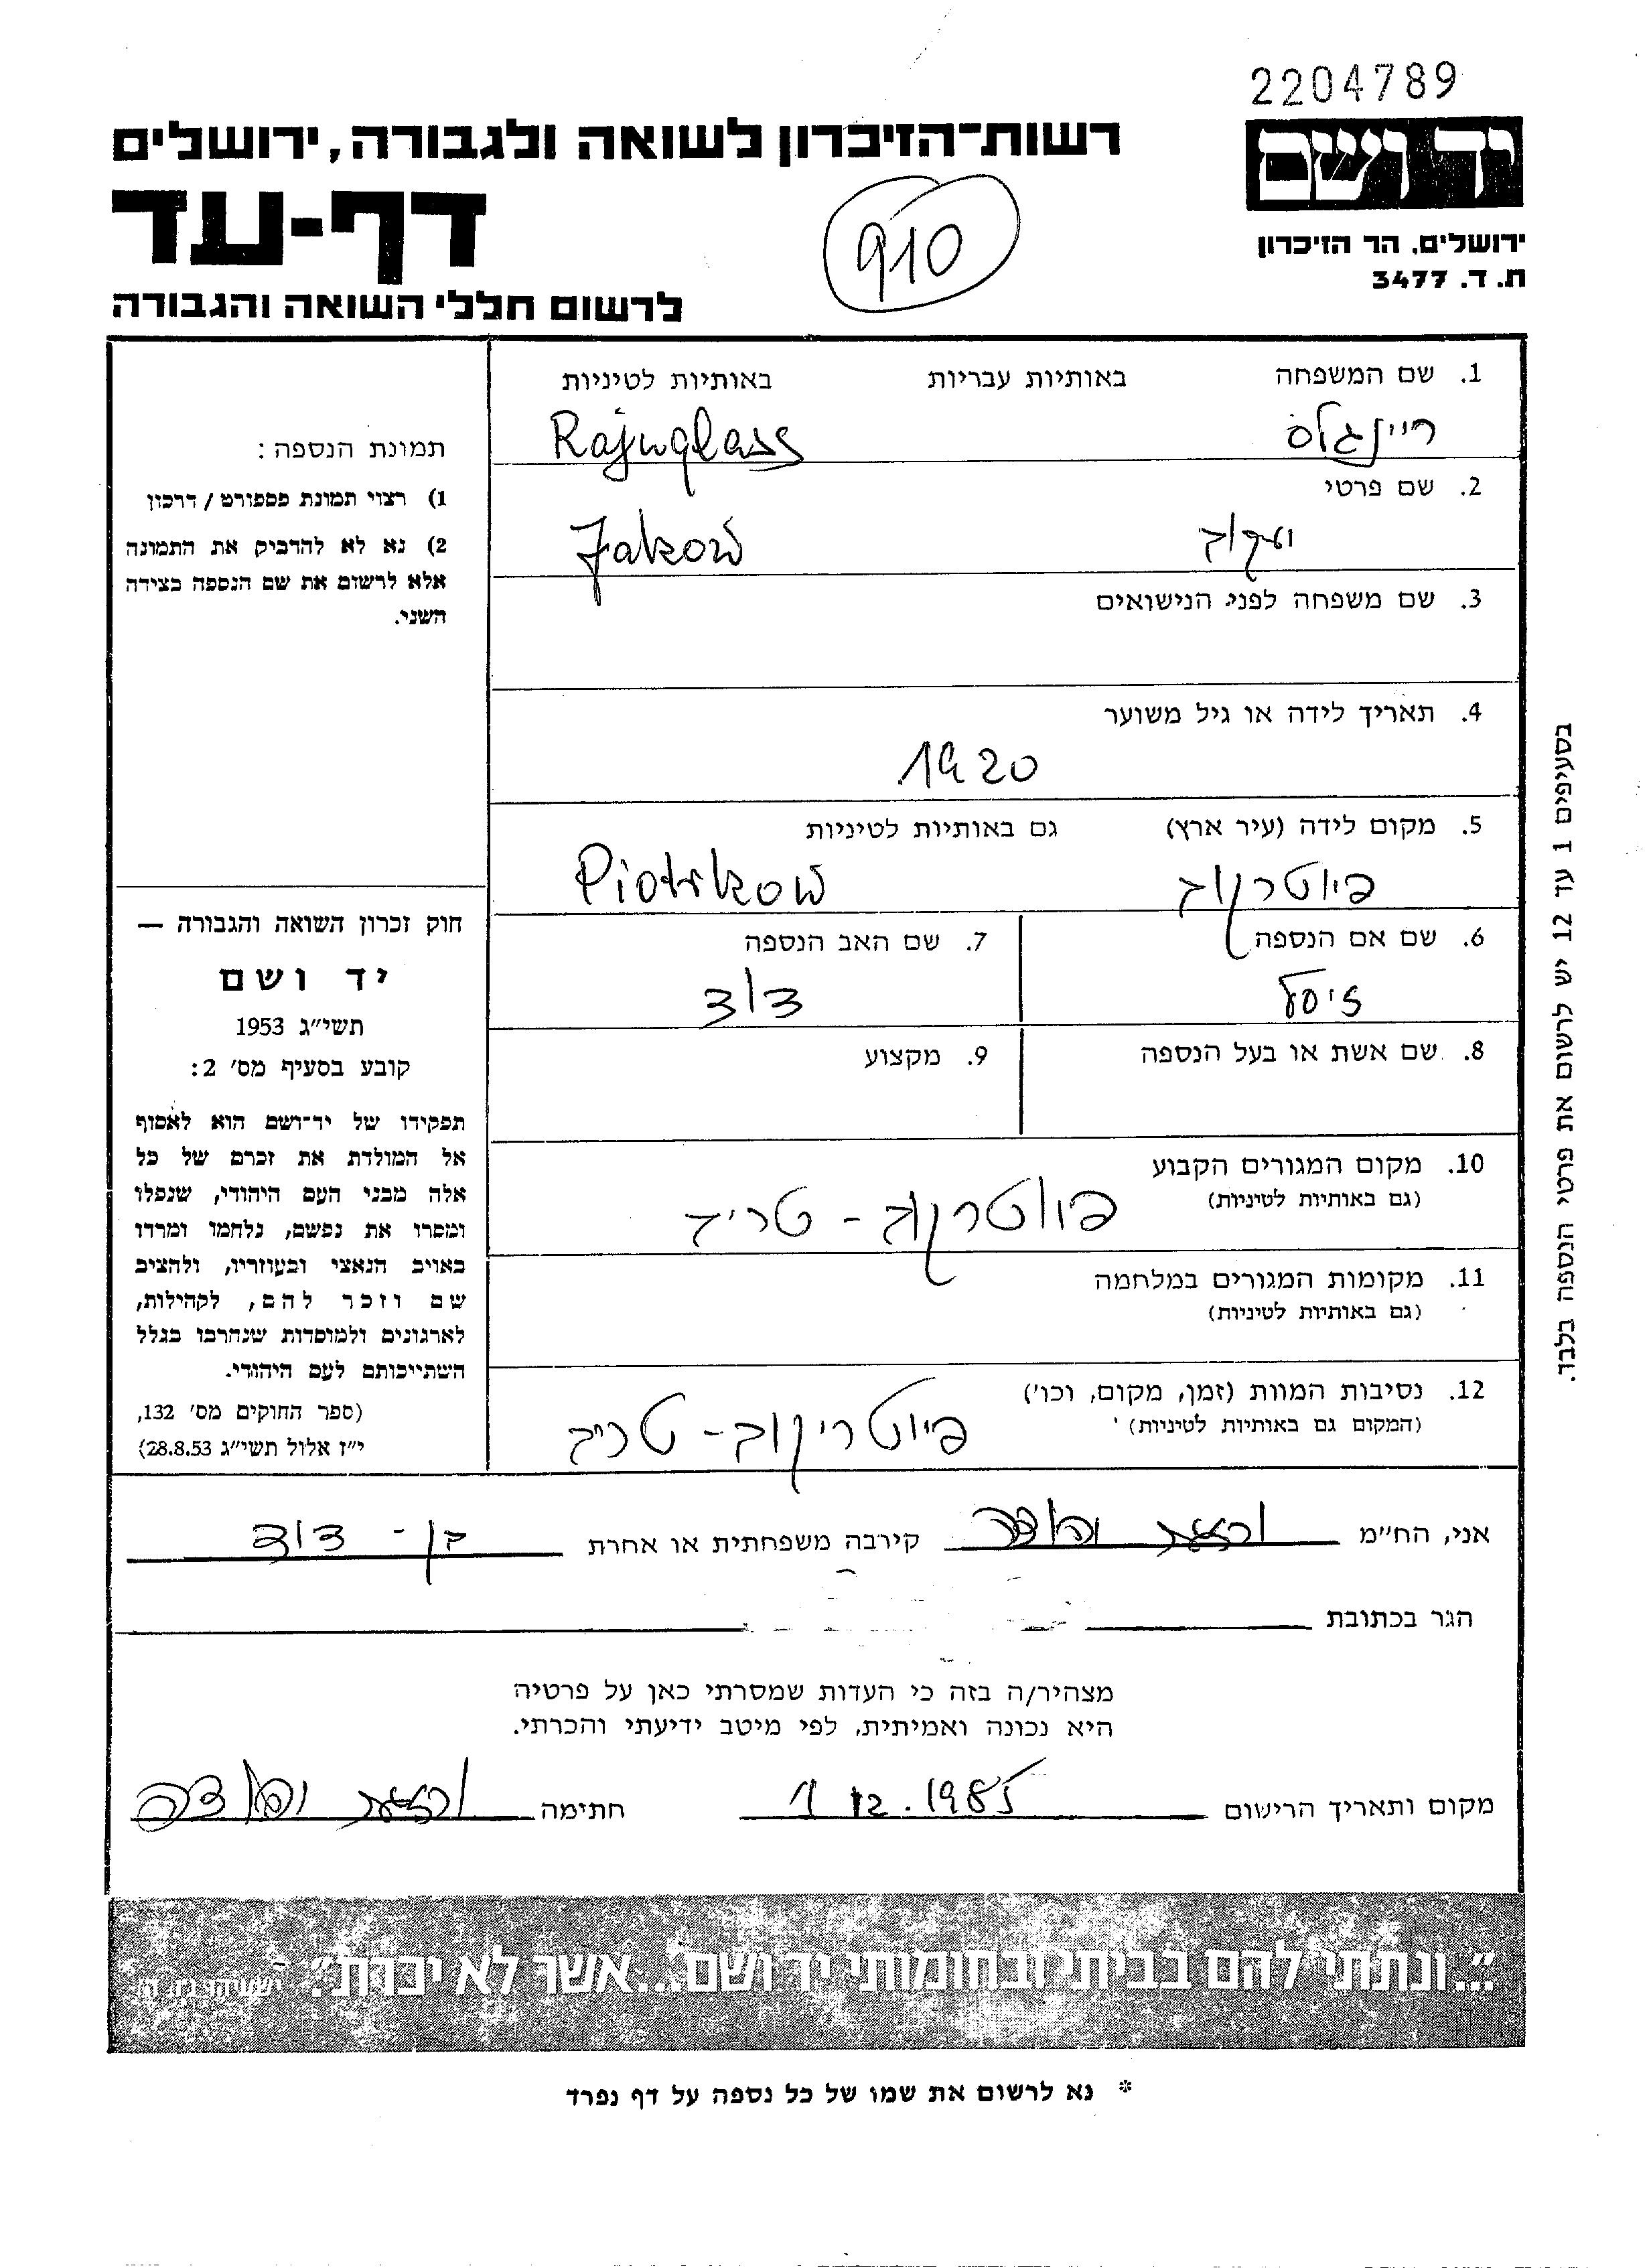 2204789
יד ושם
ירושלים, הר הזיכרון
ת. ד. 3477
רשות־הזיכרון לשואה ולגבורה, ירושלים
דף-עד
לרשום חללי השואה והגבורה
910
1. שם המשפחה באותיות עבריות באותיות לטיניות
ריינגלס Rajnglass
2. שם פרטי
יעקוב Jakow
3. שם משפחה לפני הנישואים
4. תאריך לידה או גיל משוער
1920
5. מקום לידה (עיר ארץ) גם באותיות לטיניות
פיוטרקוב Piotrkow
6. שם אם הנספה 7. שם האב הנספה
זיסל דוד
8. שם אשת או בעל הנספה 9. מקצוע
10. מקום המגורים הקבוע
(גם באותיות לטיניות)
פיוטרקוב - טריב
11. מקומות המגורים במלחמה
(גם באותיות לטיניות)
12. נסיבות המוות (זמן, מקום, וכו')
(המקום גם באותיות לטיניות)
פיוטריקוב - טריב
תמונת הנספה:
1) רצוי תמונת פספורט / דרכון
2) נא לא להדביק את התמונה
אלא לרשום את שם הנספה בצידה
השני.
חוק זכרון השואה והגבורה —
יד ושם
תשי״ג 1953
קובע בסעיף מס׳ 2:
תפקידו של יד־ושם הוא לאסוף
אל המולדת את זכרם של כל
אלה מבני העם היהודי, שנפלו
ומסרו את נפשם, נלחמו ומרדו
באויב הנאצי ובעוזריו, ולהציב
שם וזכר להם, לקהילות,
לארגונים ולמוסדות שנהרבו בגלל
השתייכותם לעם היהודי.
(ספר החוקים מס׳ 132,
י״ז אלול תשי״ג 28.8.53)
בסעיפים 1 עד 12 יש לרשום את פרטי הנספה בלבד.
אני, הח״מ קירבה משפחתית או אחרת בן - דוד
הגר בכתובת
מצהיר/ה בזה כי העדות שמסרתי כאן על פרטיה
היא נכונה ואמיתית, לפי מיטב ידיעתי והכרתי.
מקום ותאריך הרישום 1 12.1985 חתימה
״...ונתתי להם בביתי ובחומותי יד ושם...אשר לא יכרת״. ישעיהו נו, ה
* נא לרשום את שמו של כל נספה על דף נפרד